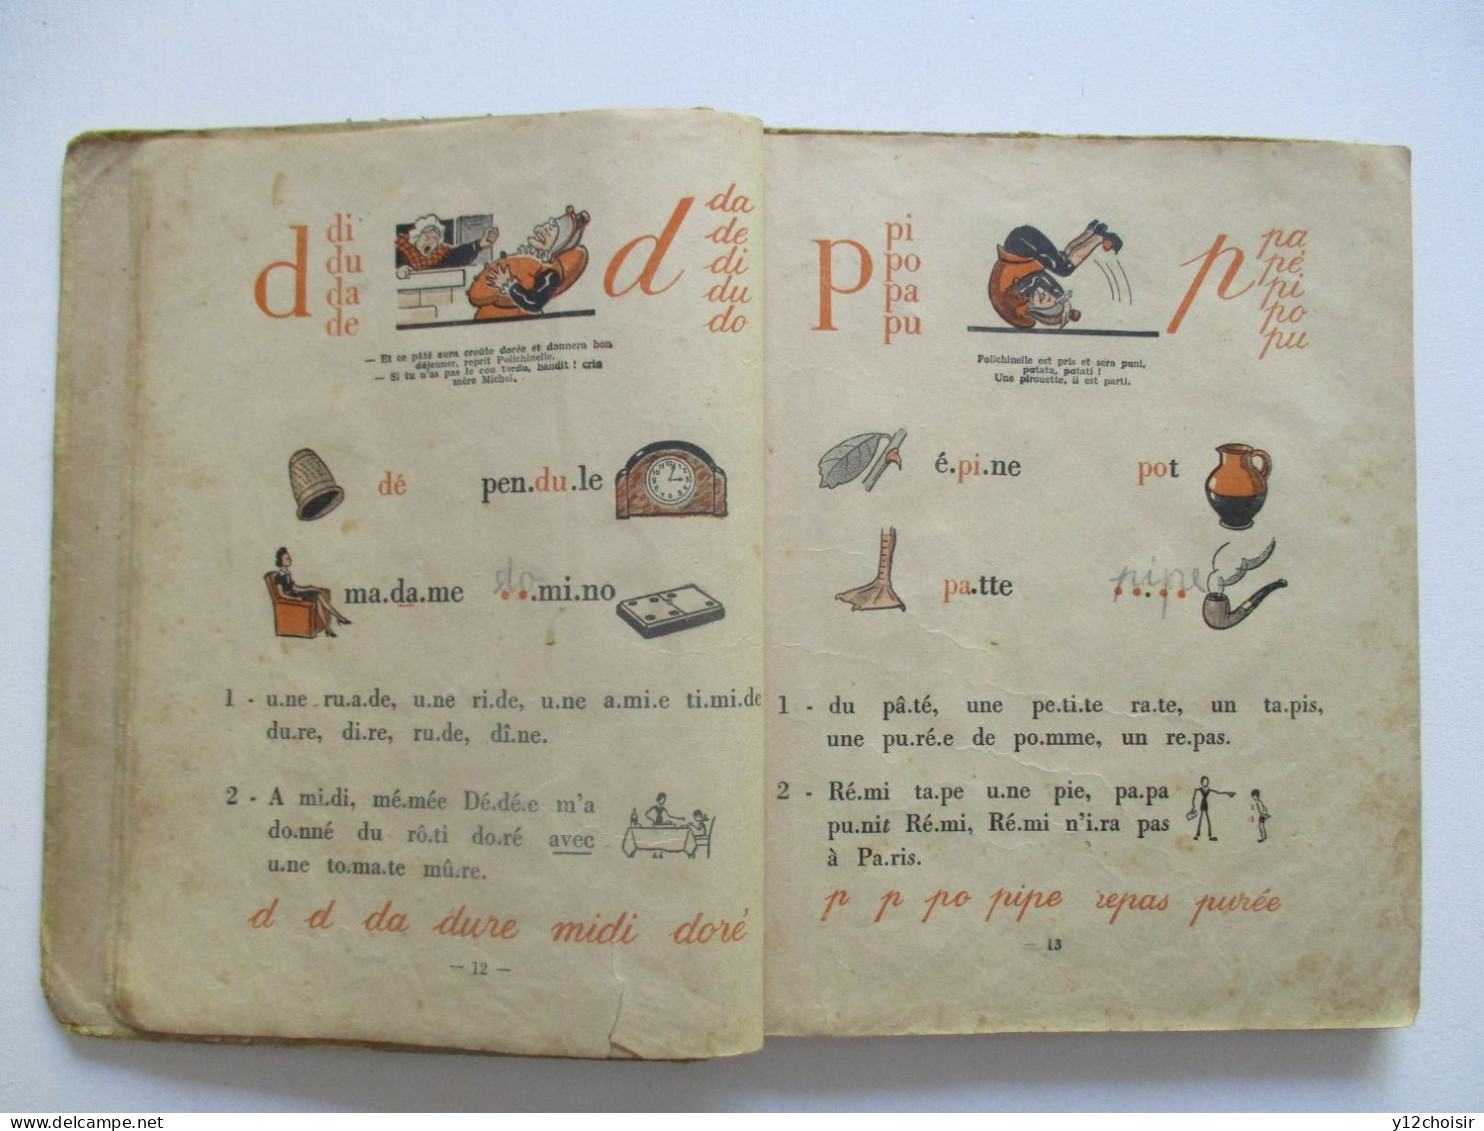 d
di
du
da
de
d
da
de
di
du
do
— Et ce pâté aura croûte dorée et donnera bon
déjeuner, reprit Polichinelle.
— Si tu n'as pas le cou tordu, bandit ! cria
mère Michel.
dé
pen.du.le
ma.da.me
do
..mi.no
1 - u.ne ru.a.de, u.ne ri.de, u.ne a.mi.e ti.mi.de
du.re, di.re, ru.de, dî.ne.
2 - A mi.di, mé.mée Dé.dé.e m'a
do.nné du rô.ti do.ré avec
u.ne to.ma.te mû.re.
d d da dure midi doré
— 12 —
p
pi
po
pa
pu
p
pa
pé
pi
po
pu
Polichinelle est pris et sera puni,
patata, patati !
Une pirouette, il est parti.
é.pi.ne
pot
pa.tte
pipe
1 - du pâ.té, une pe.ti.te ra.te, un ta.pis,
une pu.ré.e de po.mme, un re.pas.
2 - Ré.mi ta.pe u.ne pie, pa.pa
pu.nit Ré.mi, Ré.mi n'i.ra pas
à Pa.ris.
p p po pipe repas purée
— 13
y12choisir